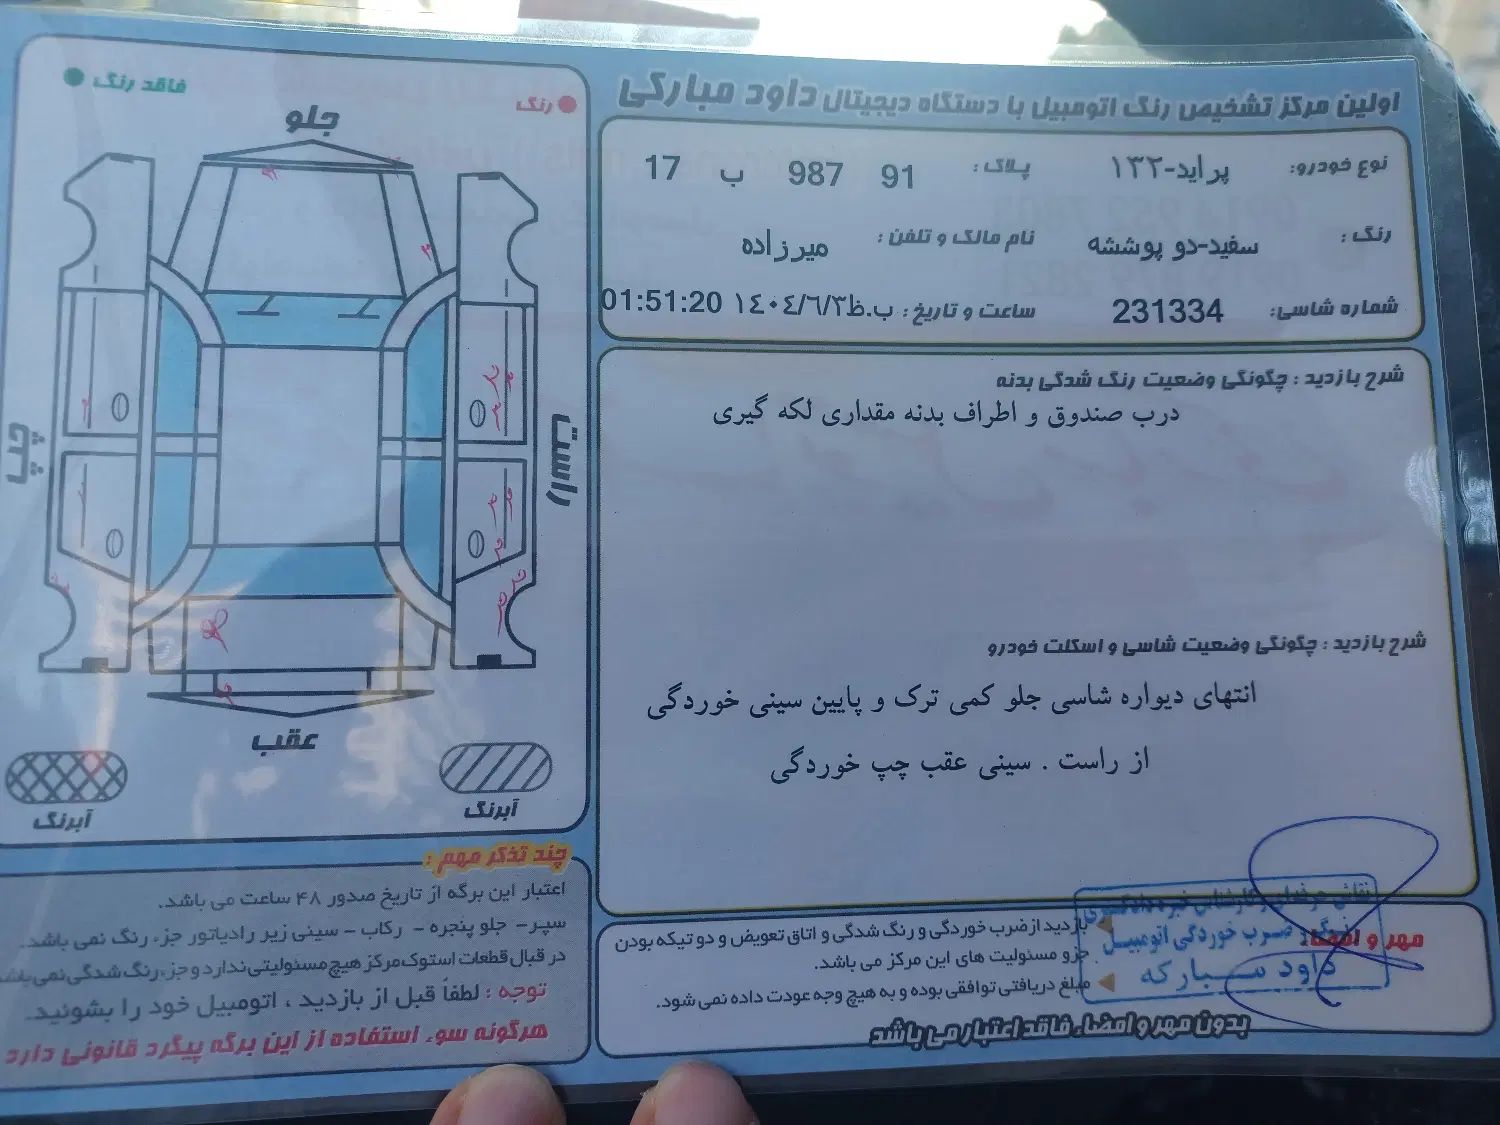 اولین مرکز تشخیص رنگ اتومبیل با دستگاه دیجیتال داود مبارکی
نوع خودرو: پراید-۱۳۲ پلاک: 91 987 ب 17
رنگ: سفید-دو پوششه نام مالک و تلفن: میرزاده
شماره شاسی: 231334 ساعت و تاریخ: ۱٤۰٤/٦/۳ ب.ظ 01:51:20
شرح بازدید : چگونگی وضعیت رنگ شدگی بدنه
درب صندوق و اطراف بدنه مقداری لکه گیری
شرح بازدید : چگونگی وضعیت شاسی و اسکلت خودرو
انتهای دیواره شاسی جلو کمی ترک و پایین سینی خوردگی
از راست . سینی عقب چپ خوردگی
مهر و امضاء
بازدید از ضرب خوردگی و رنگ شدگی و اتاق تعویض و دو تیکه بودن
جزو مسئولیت های این مرکز می باشد.
مبلغ دریافتی توافقی بوده و به هیچ وجه عودت داده نمی شود.
بدون مهر و امضاء فاقد اعتبار می باشد
ضرب خوردگی اتومبیل
رنگ
فاقد رنگ
جلو
راست
چپ
عقب
آبرنگ
آبرنگ
چند تذکر مهم :
اعتبار این برگه از تاریخ صدور ۴۸ ساعت می باشد.
سپر - جلو پنجره - رکاب - سینی زیر رادیاتور جزء رنگ نمی باشد.
در قبال قطعات استوک مرکز هیچ مسئولیتی ندارد و جزء رنگ شدگی نمی باشد
توجه : لطفاً قبل از بازدید ، اتومبیل خود را بشوئید.
هرگونه سوء استفاده از این برگه پیگرد قانونی دارد